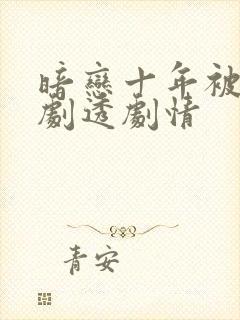 暗戀十年被
劇透劇情
青安